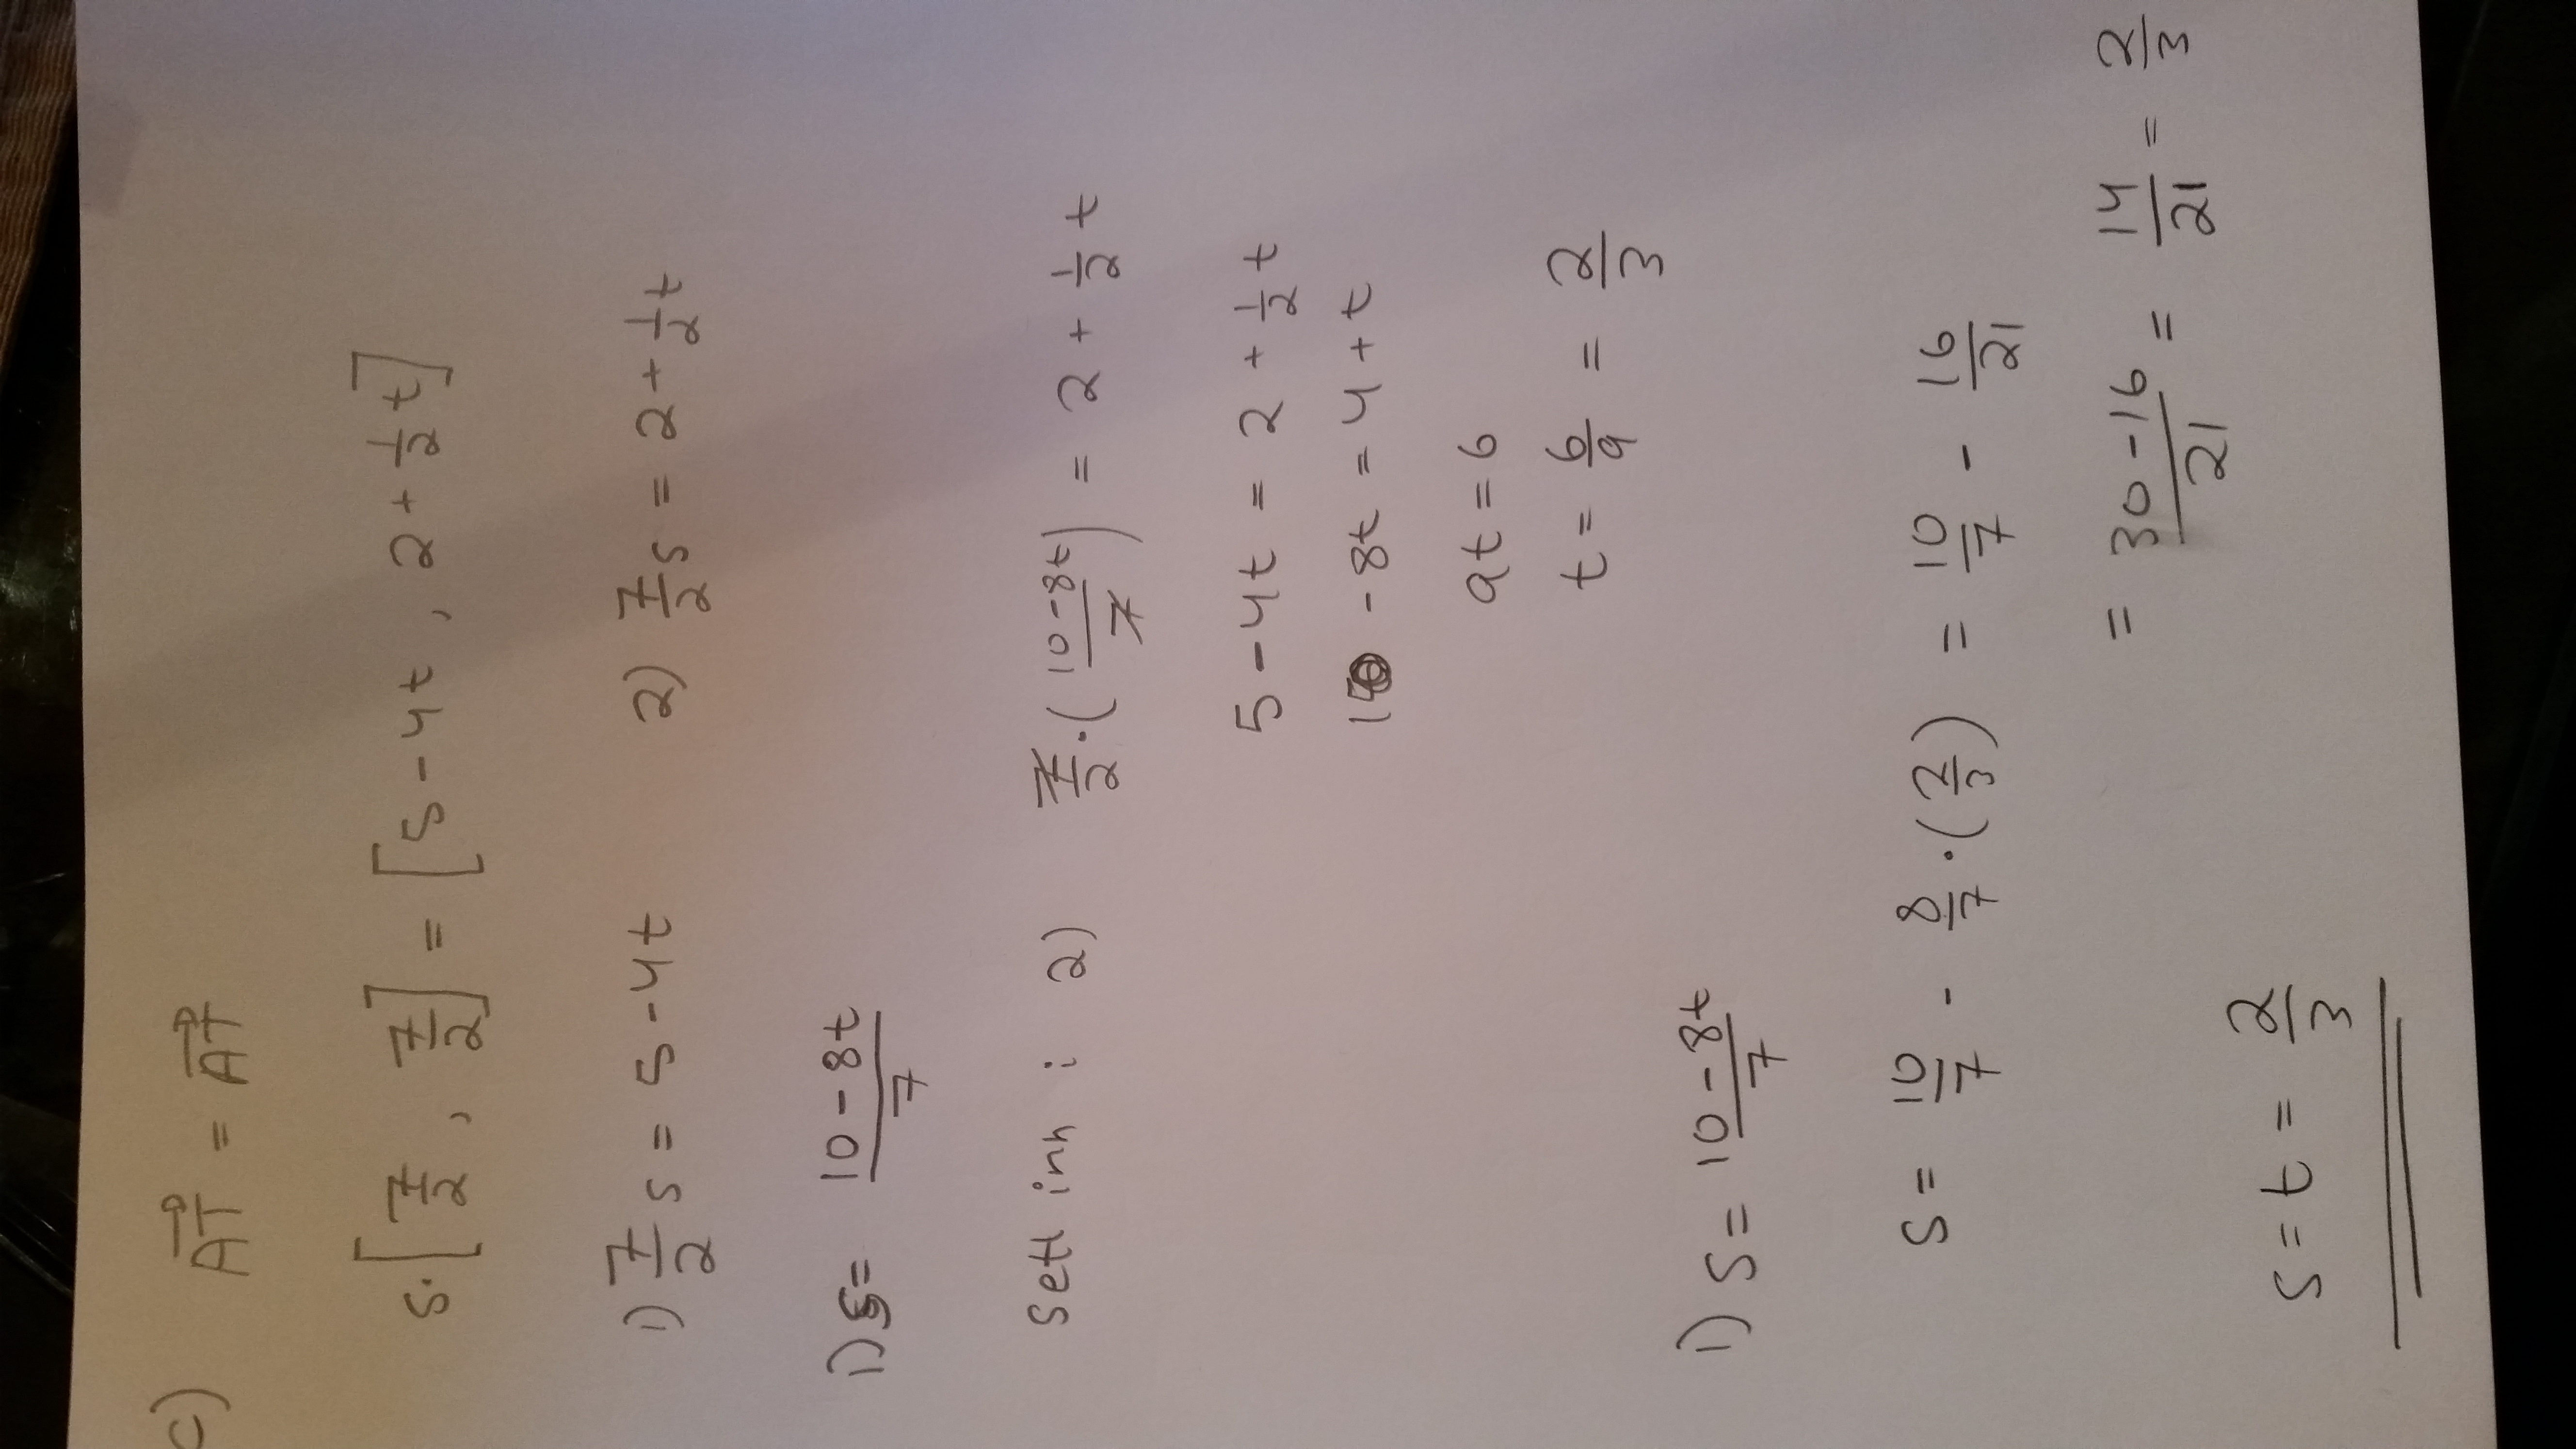 c) \overrightarrow{AT} = \overrightarrow{AT}
s·[7/2 , 7/2] = [5-4t , 2+1/2 t]
1) 7/2 s = 5-4t 2) 7/2 s = 2+1/2 t
1) s= (10-8t)/7
Sett inn i 2) 7/2·((10-8t)/7) = 2 + 1/2 t
5-4t = 2 + 1/2 t
10 -8t = 4+t
9t = 6
t = 6/9 = 2/3
1) s= (10-8t)/7
s= 10/7 - 8/7·(2/3) = 10/7 - 16/21
= (30-16)/21 = 14/21 = 2/3
s=t = 2/3